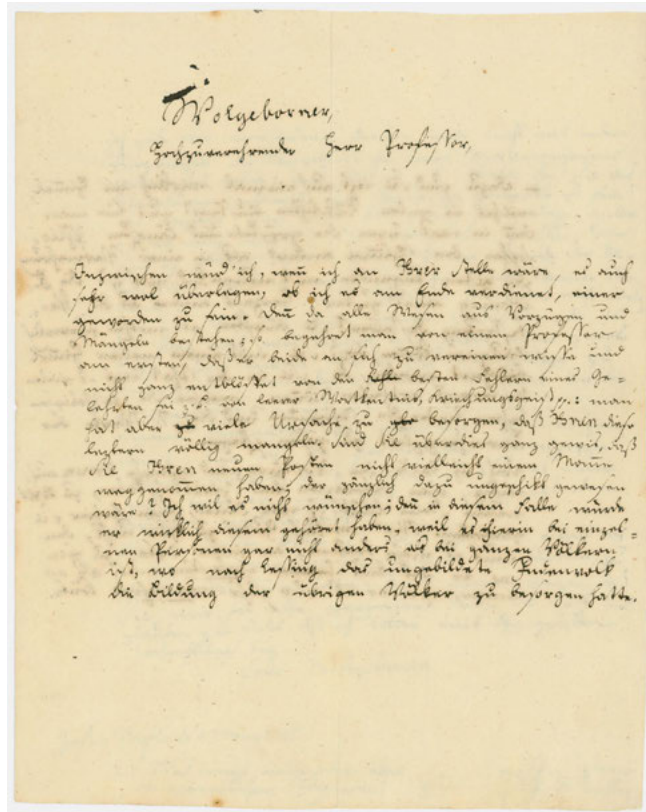 Wolgeborner,
Hochzuverehrender Herr Professor,
Inzwischen würd' ich, wenn ich an Ihrer Stelle wäre, es auch
sehr wol überlegen, ob ich es am Ende verdienet, einer
geworden zu sein. Denn da alle Wesen aus Vorzügen und
Mängeln bestehen: so begehret man von einem Professor
am ersten, daß er beide an sich zu vereinen wisse und
nicht ganz entblösset von den besten Fehlern eines Ge-
lehrten sei z.B. von leerer Wortkentnis, Kriechungsgeist p.: man
hat aber viele Ursache zu besorgen, daß Ihnen diese
leztern völlig mangeln. Sind Sie überdies ganz gewis, daß
Sie Ihren neuen Posten nicht vielleicht einem Manne
weggenommen haben, der gänzlich dazu ungeschikt gewesen
wäre? Ich wil es nicht wünschen; denn in diesem Falle würde
er wirklich diesem gehöret haben, weil es hierin bei einzel-
nen Personen gar nicht anders als bei ganzen Völkern
ist, wo nach Lessing das ungebildete Judenvolk
die Bildung der übrigen Völker zu besorgen hatte.